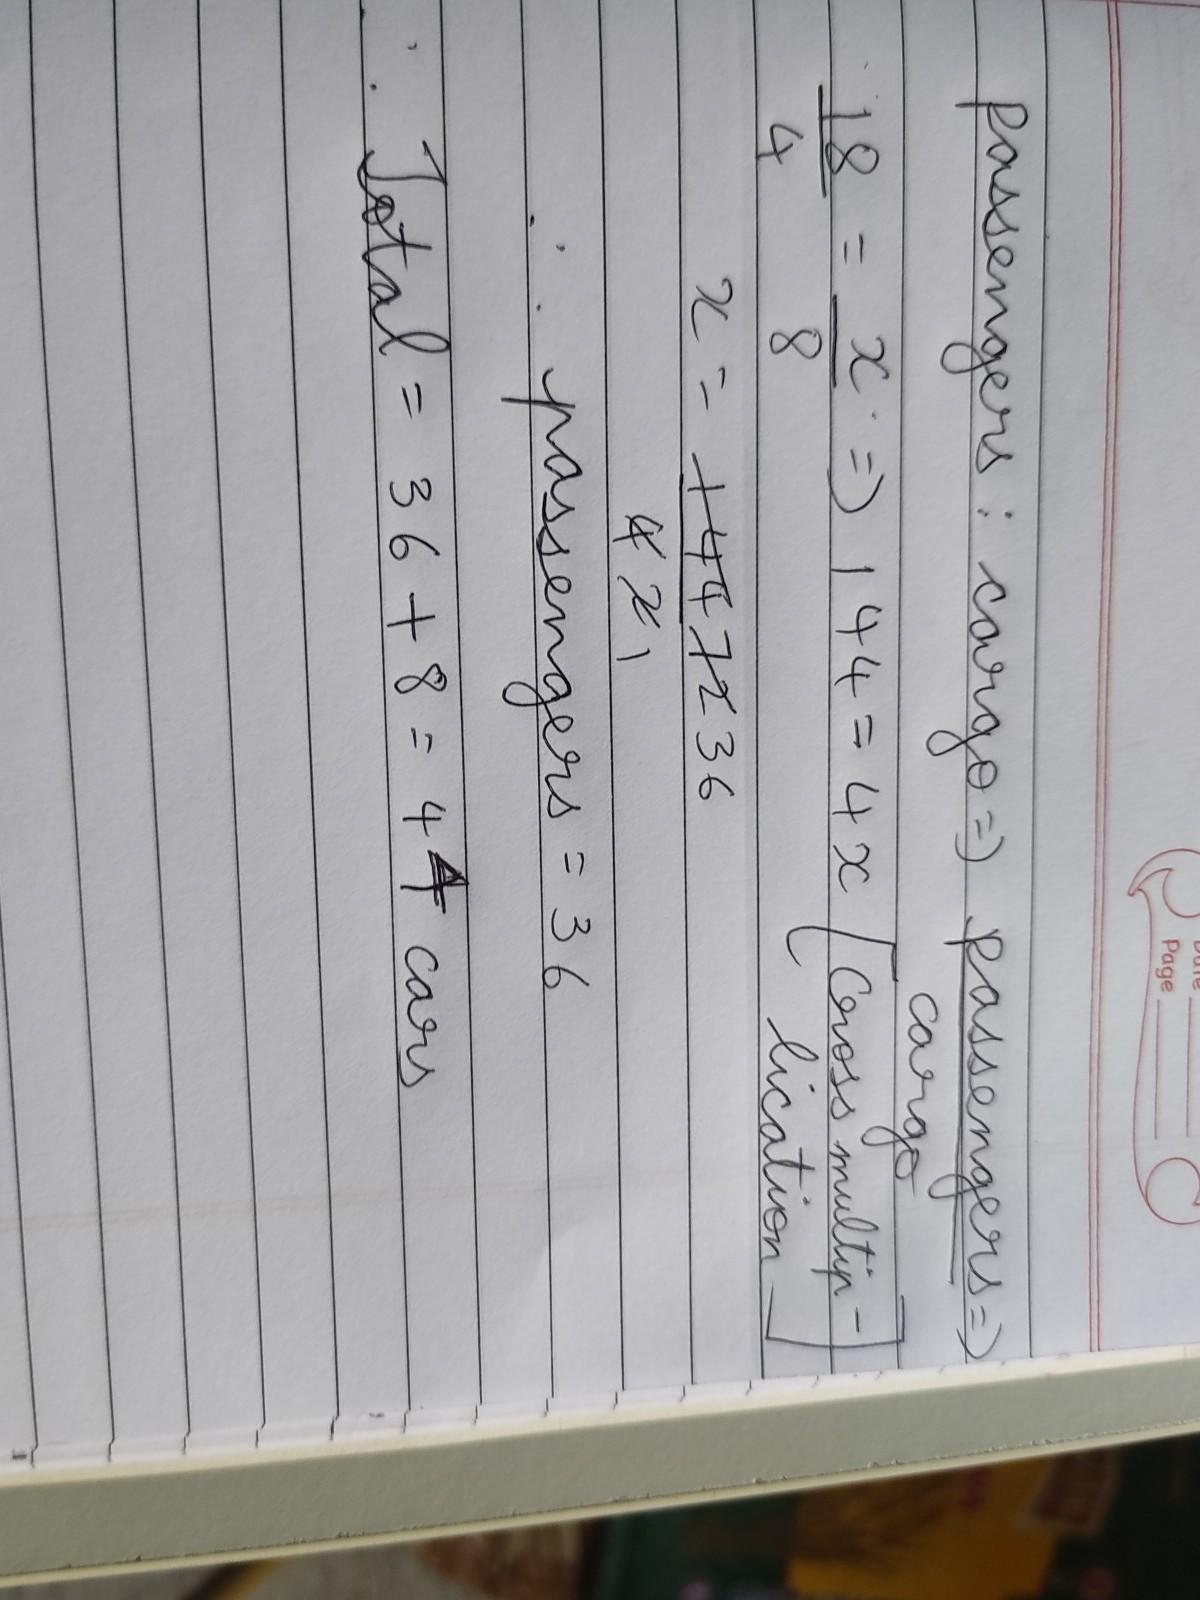 Date
Page
passengers : cargo => passengers =>
cargo
18/4 = x/8 => 144 = 4x [Cross multip-
lication]
x = 144 72 36
4 2 1
∴ passengers = 36
∴ Total = 36 + 8 = 44 cars